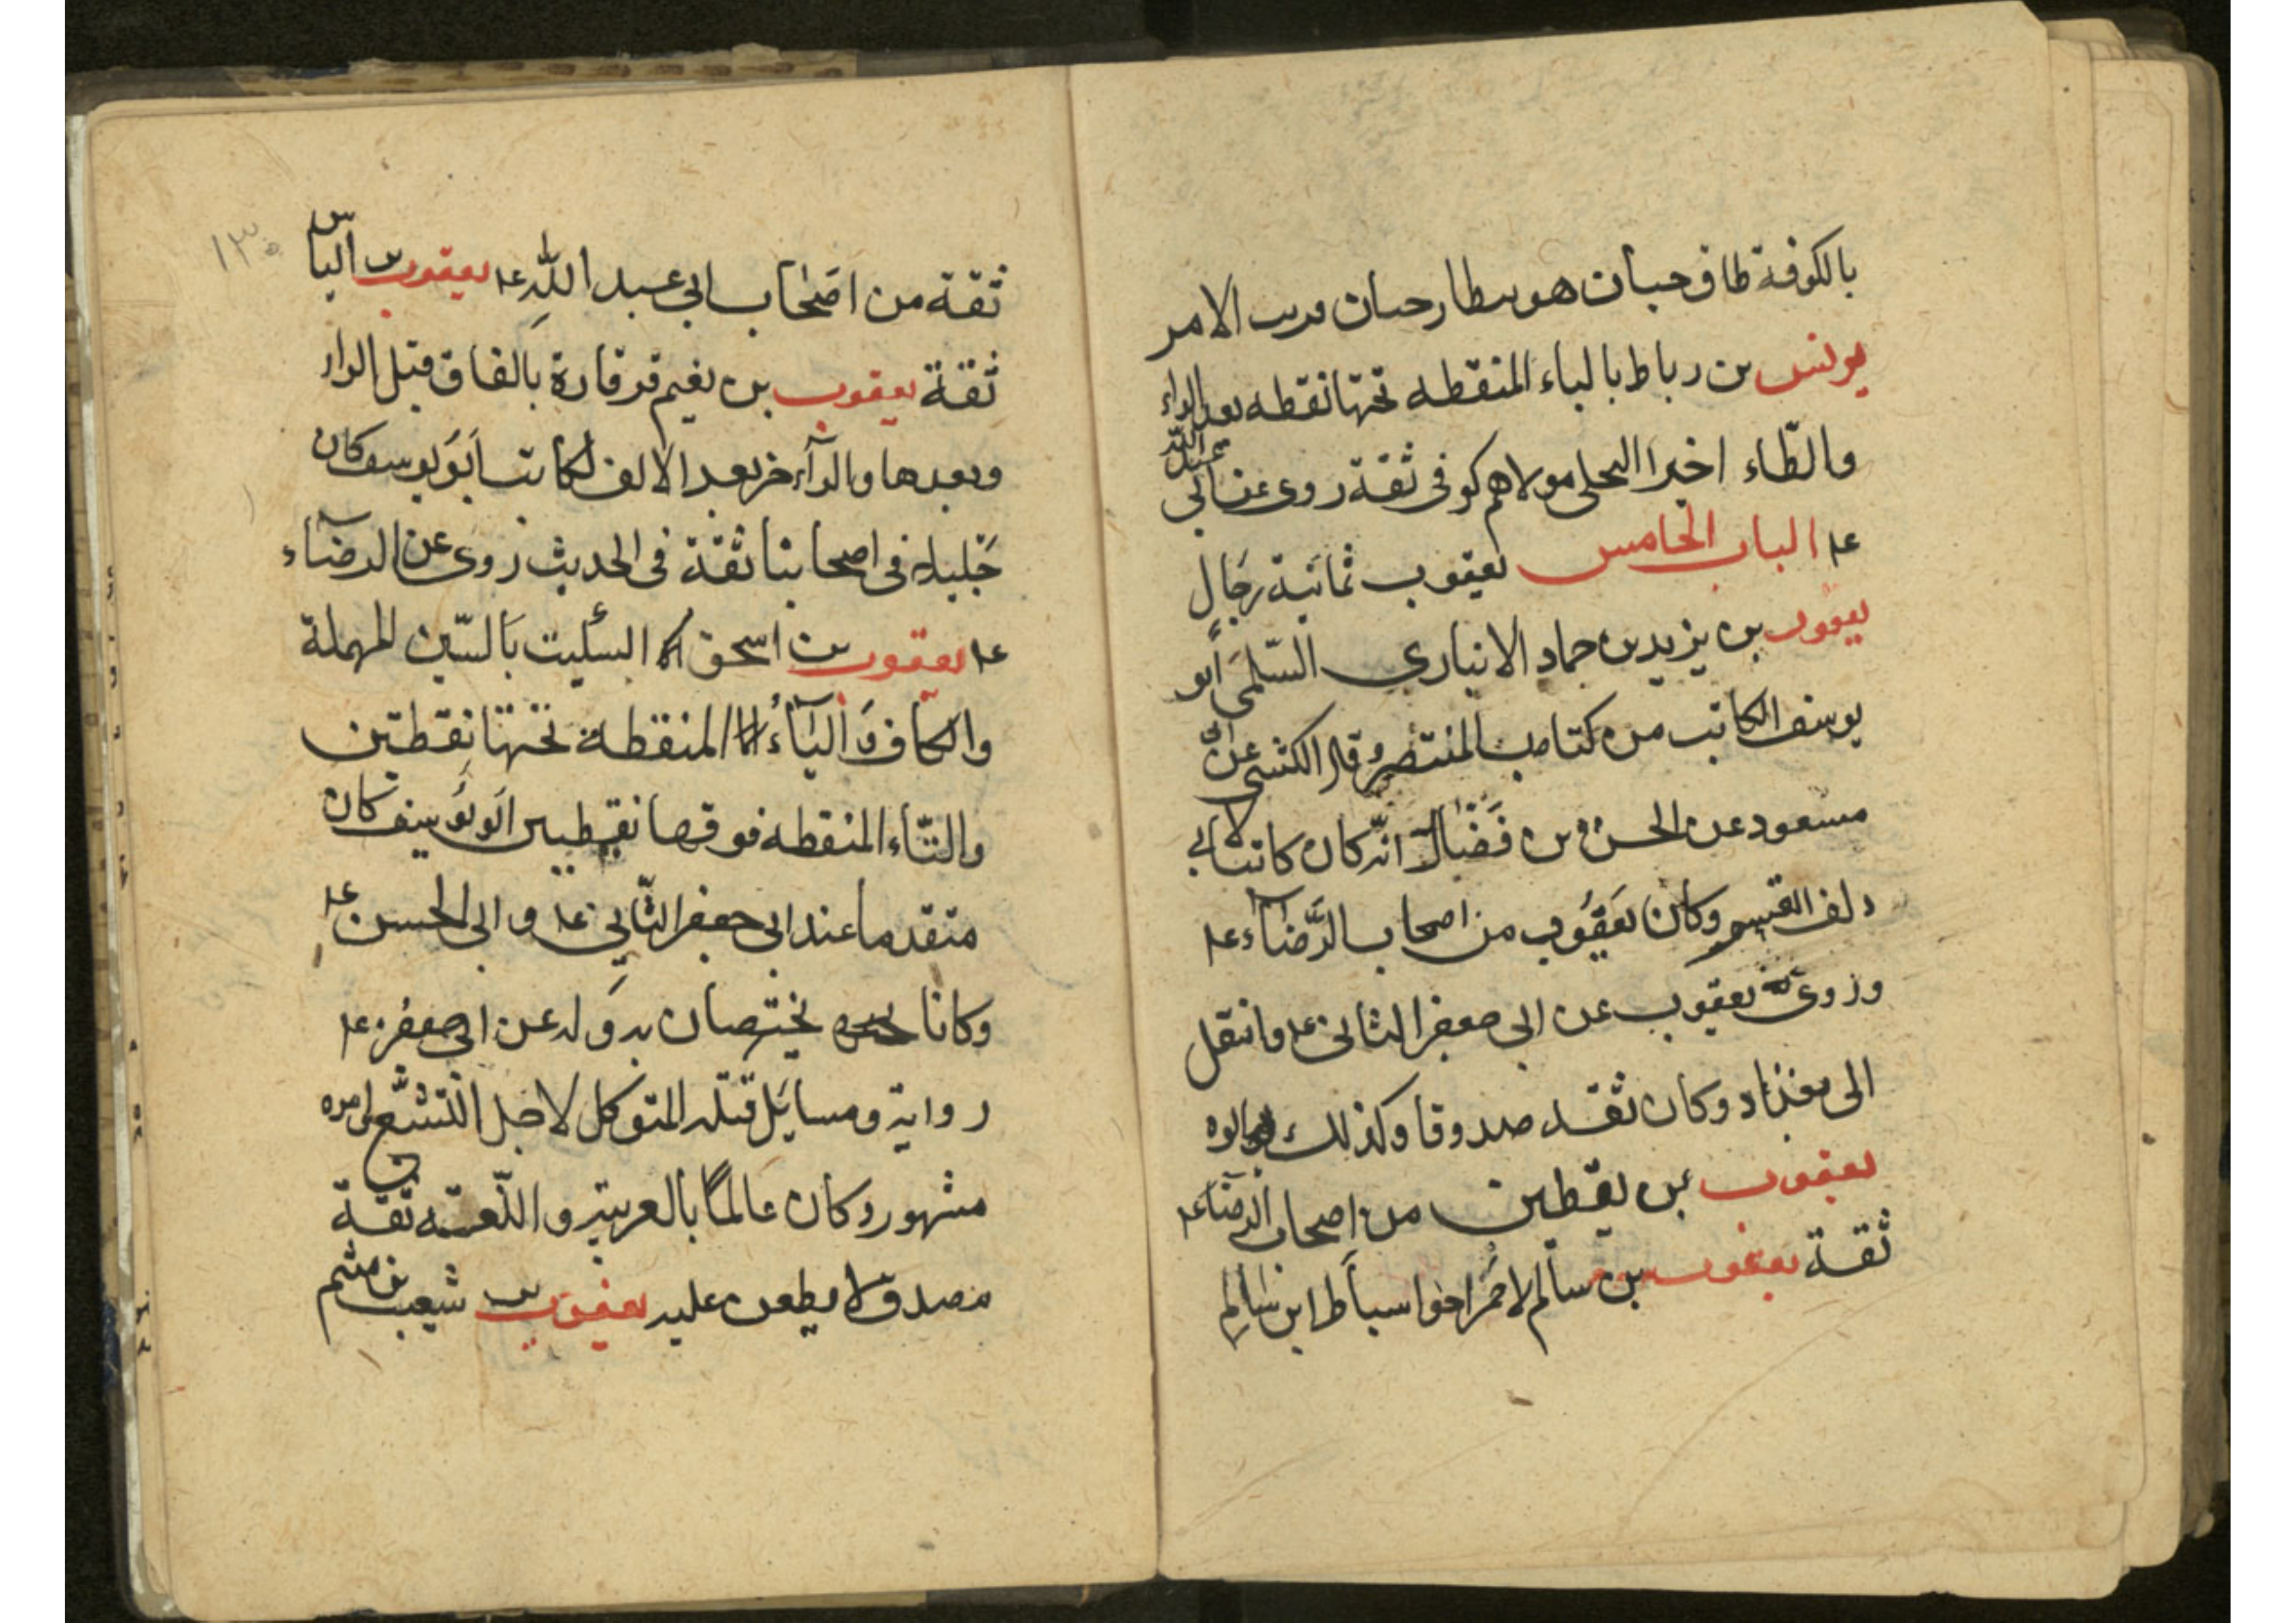 بالكوفة طاف حيان هو بيطار حيان قريب الامر
يونس بن رباط بالباء المنقطه تحتها نقطه بعد الراء
والطّاء اخيرا البجلى مولاهم كوفى ثقة روى عن ابى عبد اللّه
عل الباب الخامس يعقوب ثمانية رجال
يعقوب بن يزيد بن حماد الانباري السّلمى ابو
يوسف الكاتب من كتاب المنتصر قال الكشى عن ابن
مسعود عن الحسن بن فضال انّه كان كاتبا لابى
دلف القسم وكان يعقوب من اصحاب الرّضاء عل
وروى يعقوب عن ابى جعفر الثانى عل وانتقل
الى بغداد وكان ثقه صدوقا وكذلك ابوه
يعقوب بن يقطين من اصحاب الرضاء عل
ثقة يعقوب بن سالم الاحمر اخوا سباط ابن سالم
ثقة من اصحاب ابى عبد اللّه عل يعقوب بن الياس
ثقة يعقوب بن نعيم قرقارة بالقاف قبل الراء
وبعدها والرآء اخر بعد الالف الكاتب ابو يوسف كان
جليلا فى اصحابنا ثقة فى الحديث روى عن الرضاء
عل يعقوب بن اسحق السكيت بالسّين المهملة
والكاف والياء المنقطة تحتها نقطتين
والتّاء المنقطه فوقها نقطتين ابو يوسف كان
متقدما عند ابى جعفر الثّاني عل و ابى الحسن عل
وكانا يختصان به وله عن ابى جعفر عل
رواية ومسايل قتله المتوكل لاجل التشيّع امره
مشهور وكان عالما بالعربية و اللّغه ثقة
مصدق لا يطعن عليه يعقوب بن شعيب بن ميثم
١٣٠